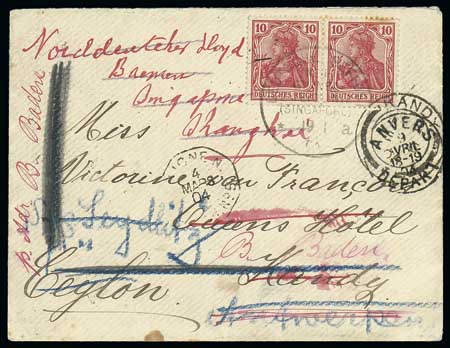 10 10 10 10
DEUTSCHES REICH DEUTSCHES REICH
Norddeutscher Lloyd
Bremen
Singapore
Shanghai
(SINGAPORE)
KANDY
ANVERS
9
AVRIL
18-19
04
DEPART
Miss
Victorine van François
4
MAR
04
Seydlitz
Queens Hôtel
B. Baden
Kandy
Ceylon
Antwerpen
p. Adr B. Baden